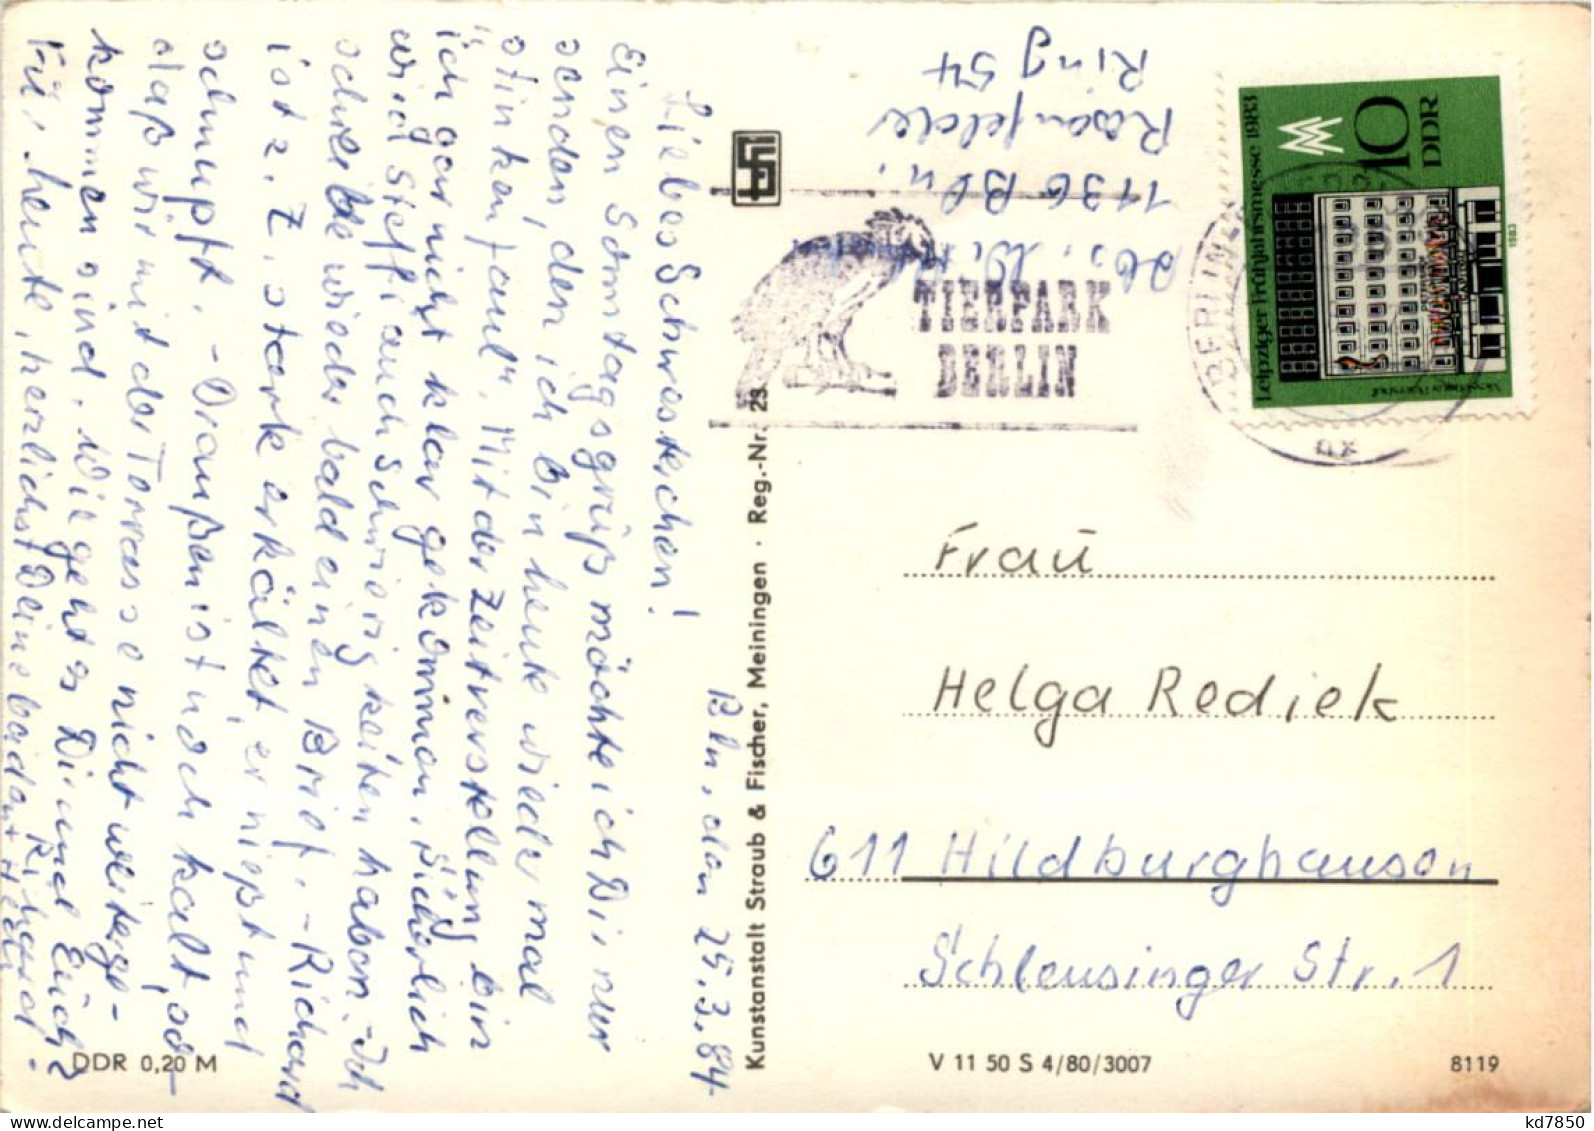 Bln, den 25.3.84
Liebes Schwesterchen!
Einen Sonntagsgruß möchte ich Dir nur
senden, den ich bin heute wieder mal
„stinkenfaul“. Mit der Zeitverstellung bin
ich gar nicht klar gekommen, sicherlich
wird Steffi auch Schwierigkeiten haben. – Ich
schreibe wieder bald einen Brief. – Richard
ist z. Z. stark erkältet, er niest und
schnupft. – Draußen ist noch kalt, so
daß wir mit der Terrasse nicht weiterge-
kommen sind. Wie geht es Dir und Euch?
Für heute, herzlichst Deine beiden
Richard
Abs.
1136 Bln.
Rosenfelder
Ring 54
TIERPARK
BERLIN
BERLIN
Leipziger Frühjahrsmesse 1983
10
DDR
1983
Frau
Helga Rediek
611 Hildburghausen
Schleusinger Str. 1
Kunstanstalt Straub & Fischer, Meiningen · Reg.-Nr. 23
DDR 0,20 M
V 11 50 S 4/80/3007
8119
kd7850